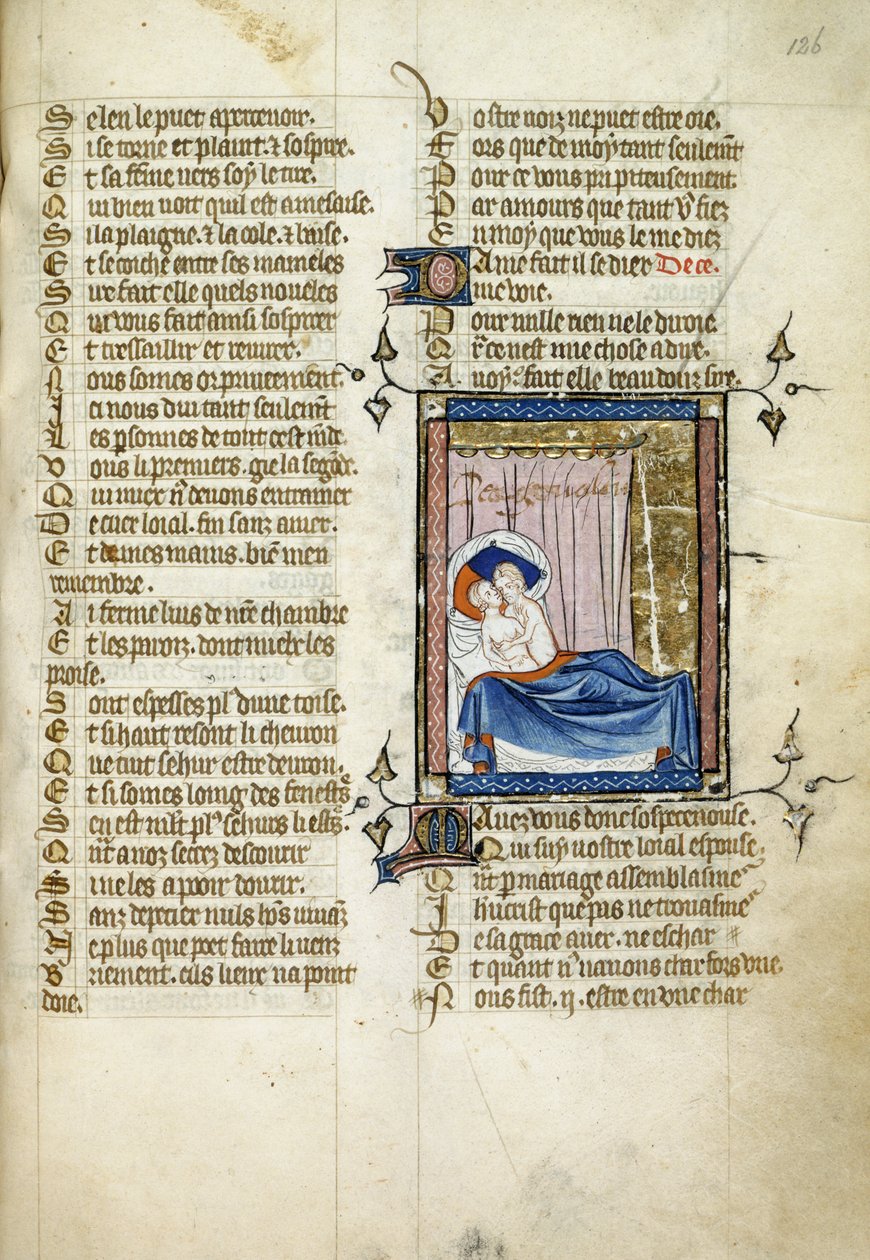 126
S elen le puet apercevoir.
S i se torne et plaint. & sospire.
E t sa fame vers soy le tire.
Q ui bien voit quil est a mesaise.
S i la plaigne. & la cole. & baise.
E t se couche entre ses mameles
S ire fait elle quels noueles
Q ui vous fait ainsi sospirer
E t tressaillir et reuirer.
N ous somes or priueement.
I ci nous dui tant seulemt
L es psonnes de tout cest mde
V ous li premiers. gie la segode.
Q ui mier n deuons entramer
D e cuer loial. fin sanz amer.
E t de mes mains. bien men
remembre.
A i ferme luis de nre chambre
E t les paroiz. dont miex les
proise.
S ont espesses pl dune toise.
E t si haut resont li cheuron
Q ue tuit sehur estre deuron.
E t si somes loing des fenest
S en est mlt pl sehurs li est
Q nt a noz secrez descourir
S i ne les a pooir douurir.
S anz depecier nuls hons uiuanz
N e plus que poet faire li uenz
B riement. cils lieux na point
doie.
V ostre uoiz ne puet estre oie.
F ors que de moy tant seulemt
P our ce vous pri piteusement.
P ar amours que tant v fiez
E n moy que vous le me diez
D Ame fait il se diex De ce.
me voie.
P our nulle rien ne le diroie.
Q r ce nest mie chose a dire.
A uoy. fait elle beau douz sire.
M Auez vous donc sospeconouse.
Q ui suy uostre loial espouse.
Q nt p mariage assemblasme
I hucrist que pas ne trouasme
D e sa grace auer. ne eschar
E t quant n nauions char fors vne.
N ous fist. ij. estre en vne char